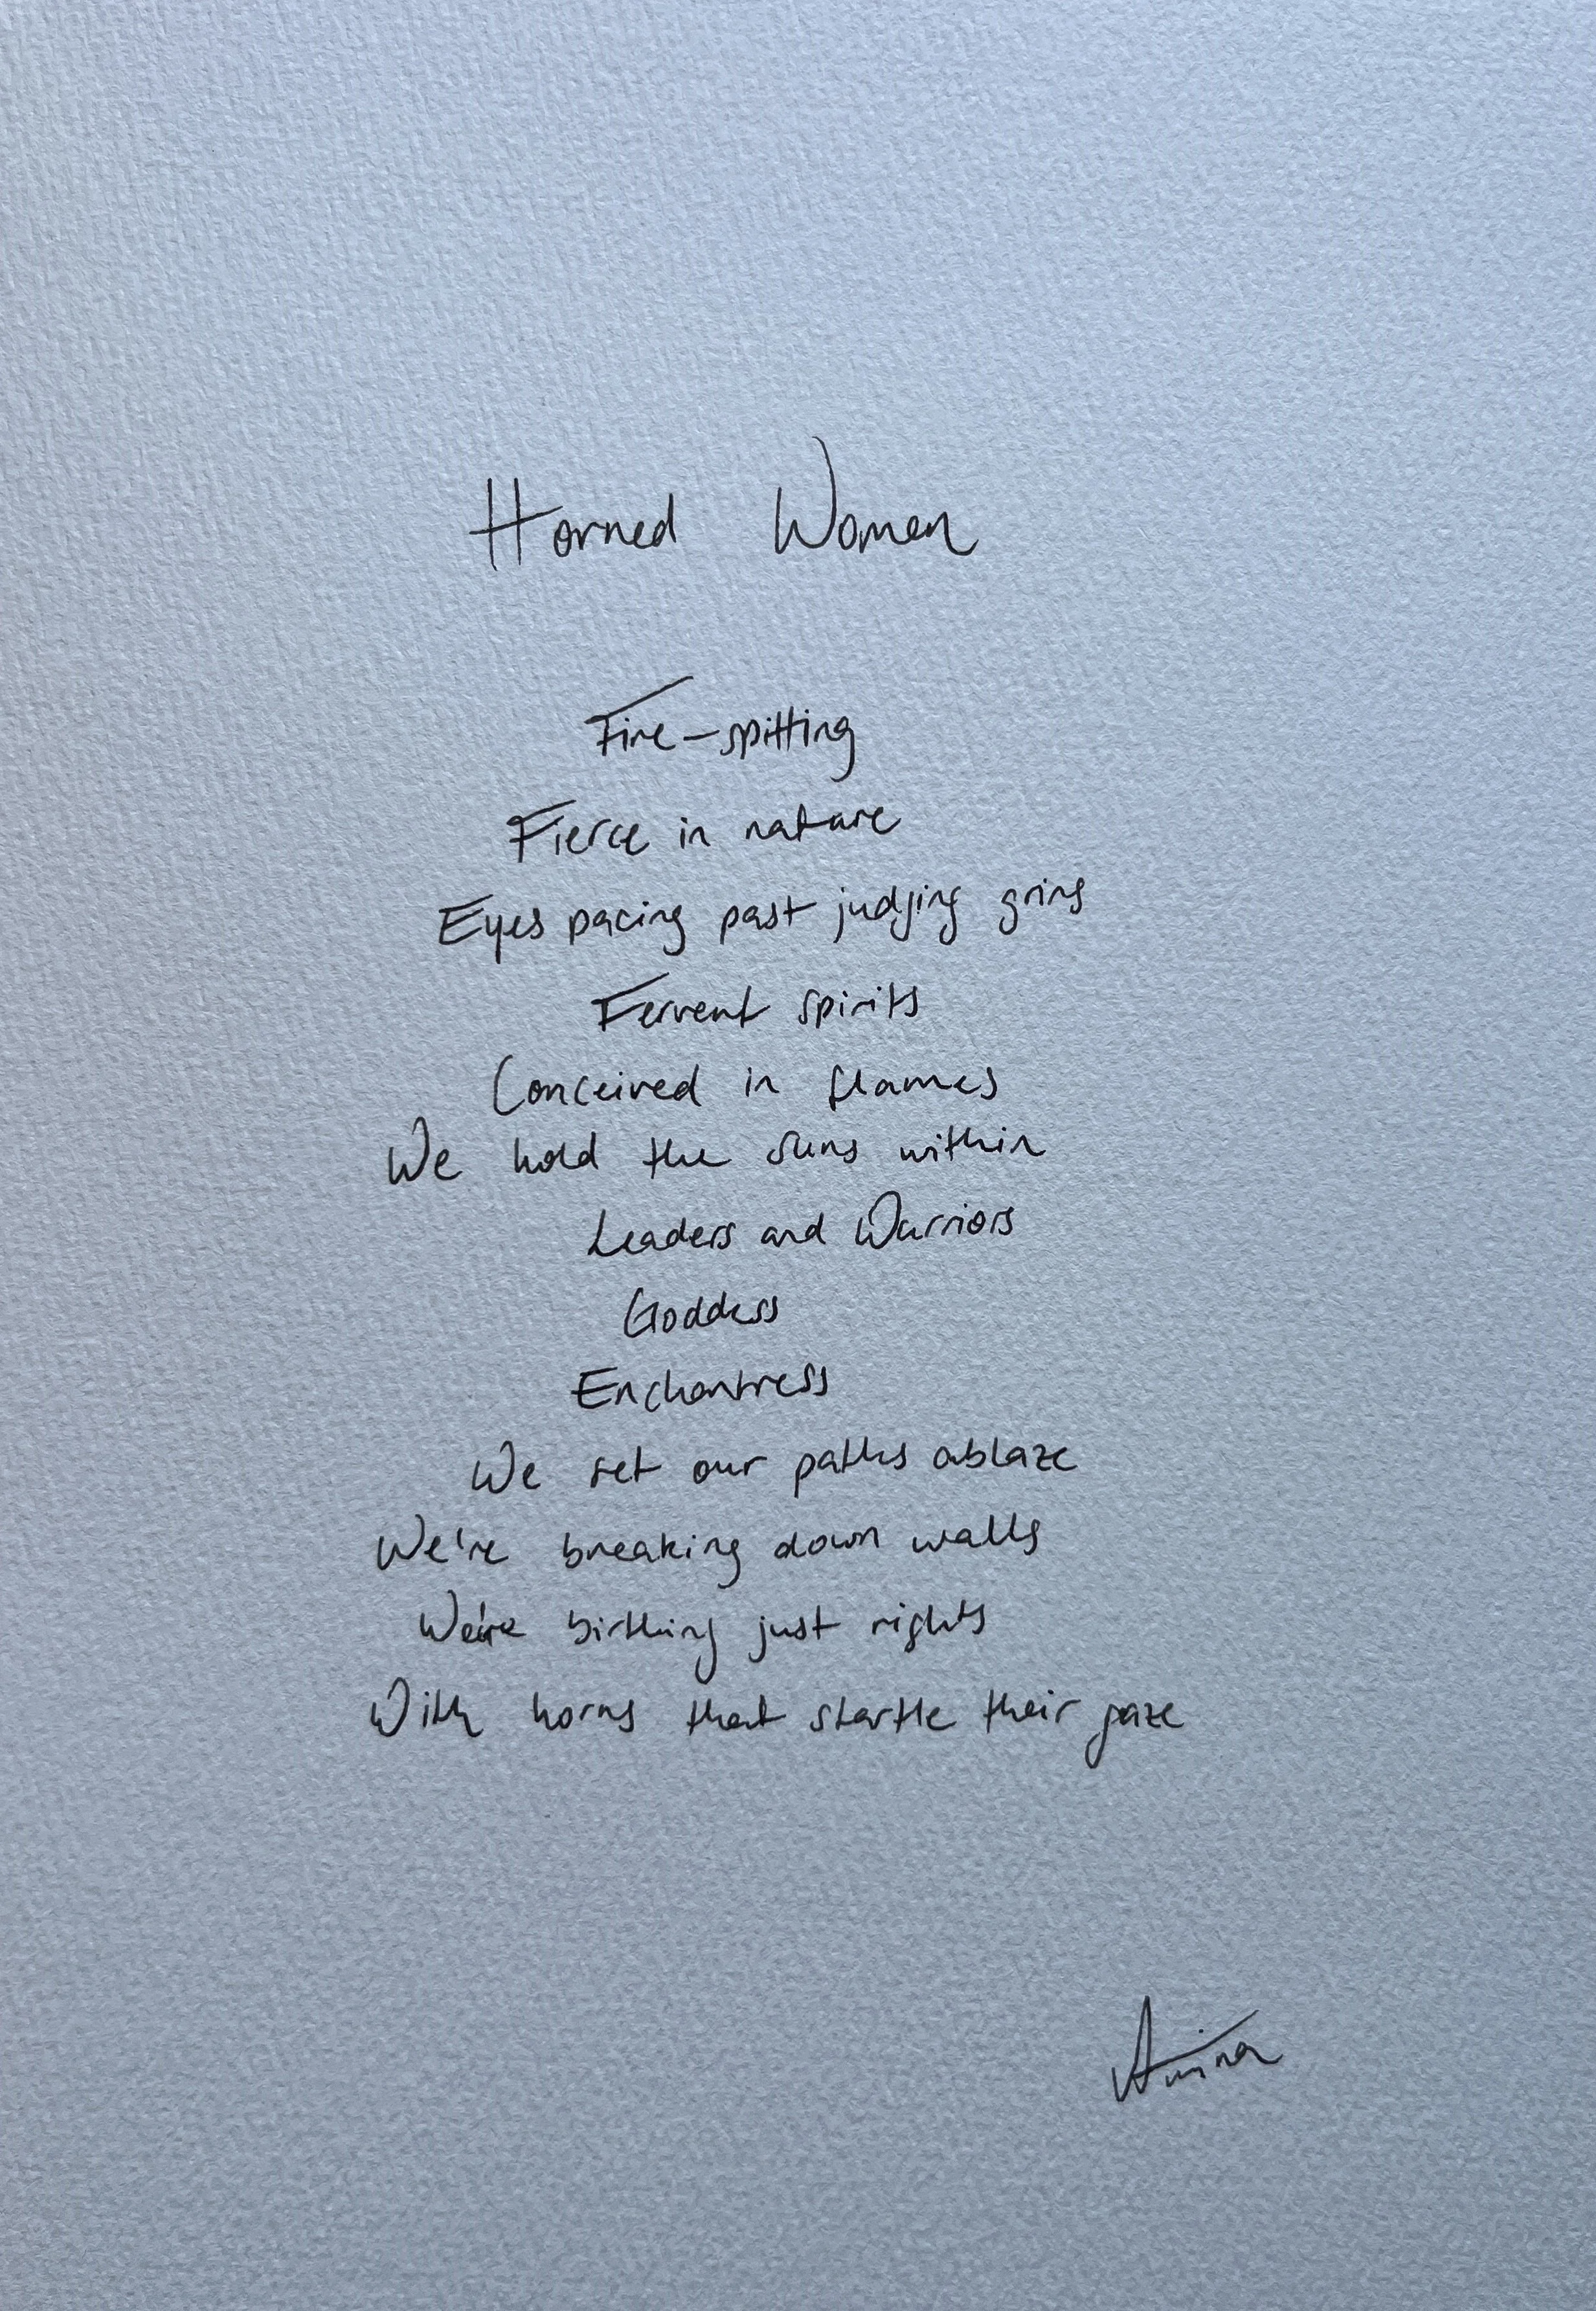 Horned Women
Fire-spitting
Fierce in nature
Eyes pacing past judging grins
Fervent spirits
Conceived in flames
We hold the suns within
Leaders and Warriors
Goddess
Enchantress
We set our paths ablaze
We're breaking down walls
We're birthing just rights
With horns that startle their gaze
Amina